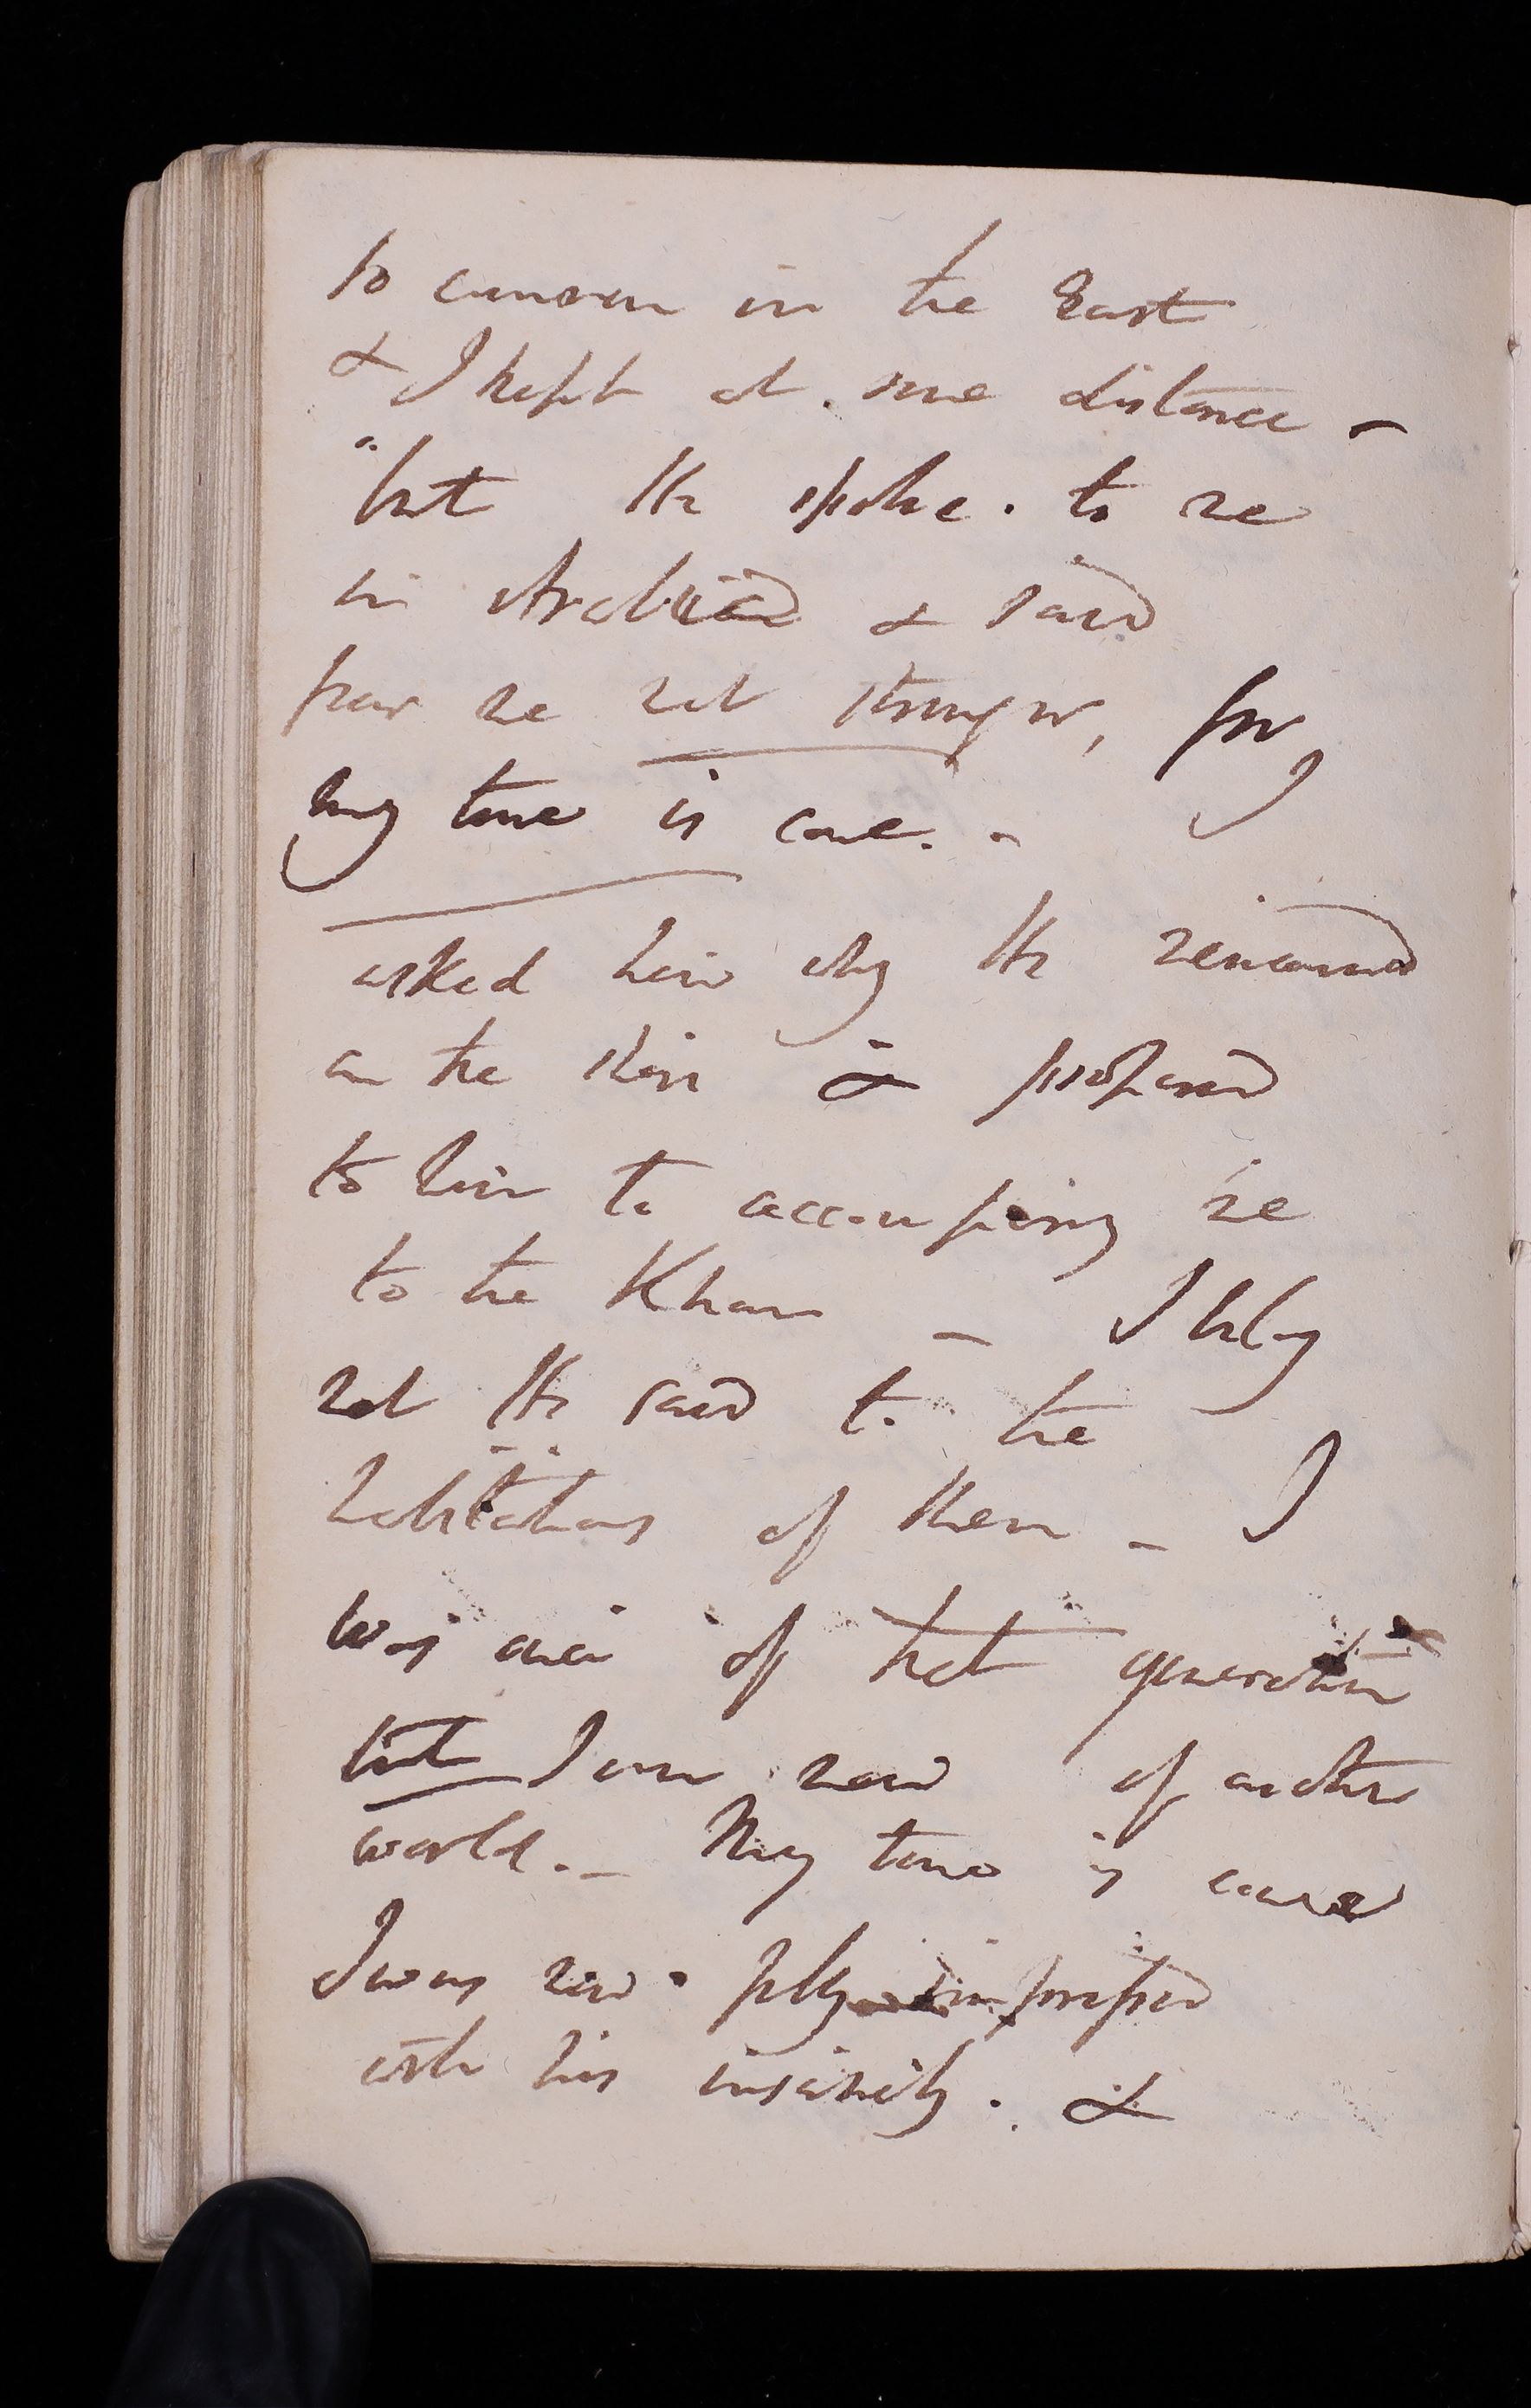 to common in the East
& I kept at some distance –
"but He spoke. to me
in Arabian & said
fear me not stranger, for
my time is come. – I
asked him why He remained
on the skin & proposed
to him to accompany me
to the Khan – I belong
not He said to the
habitations of them – I
was once of that generation
but I am now of another
world. – My time is come
I was now fully impressed
with his insanity. &